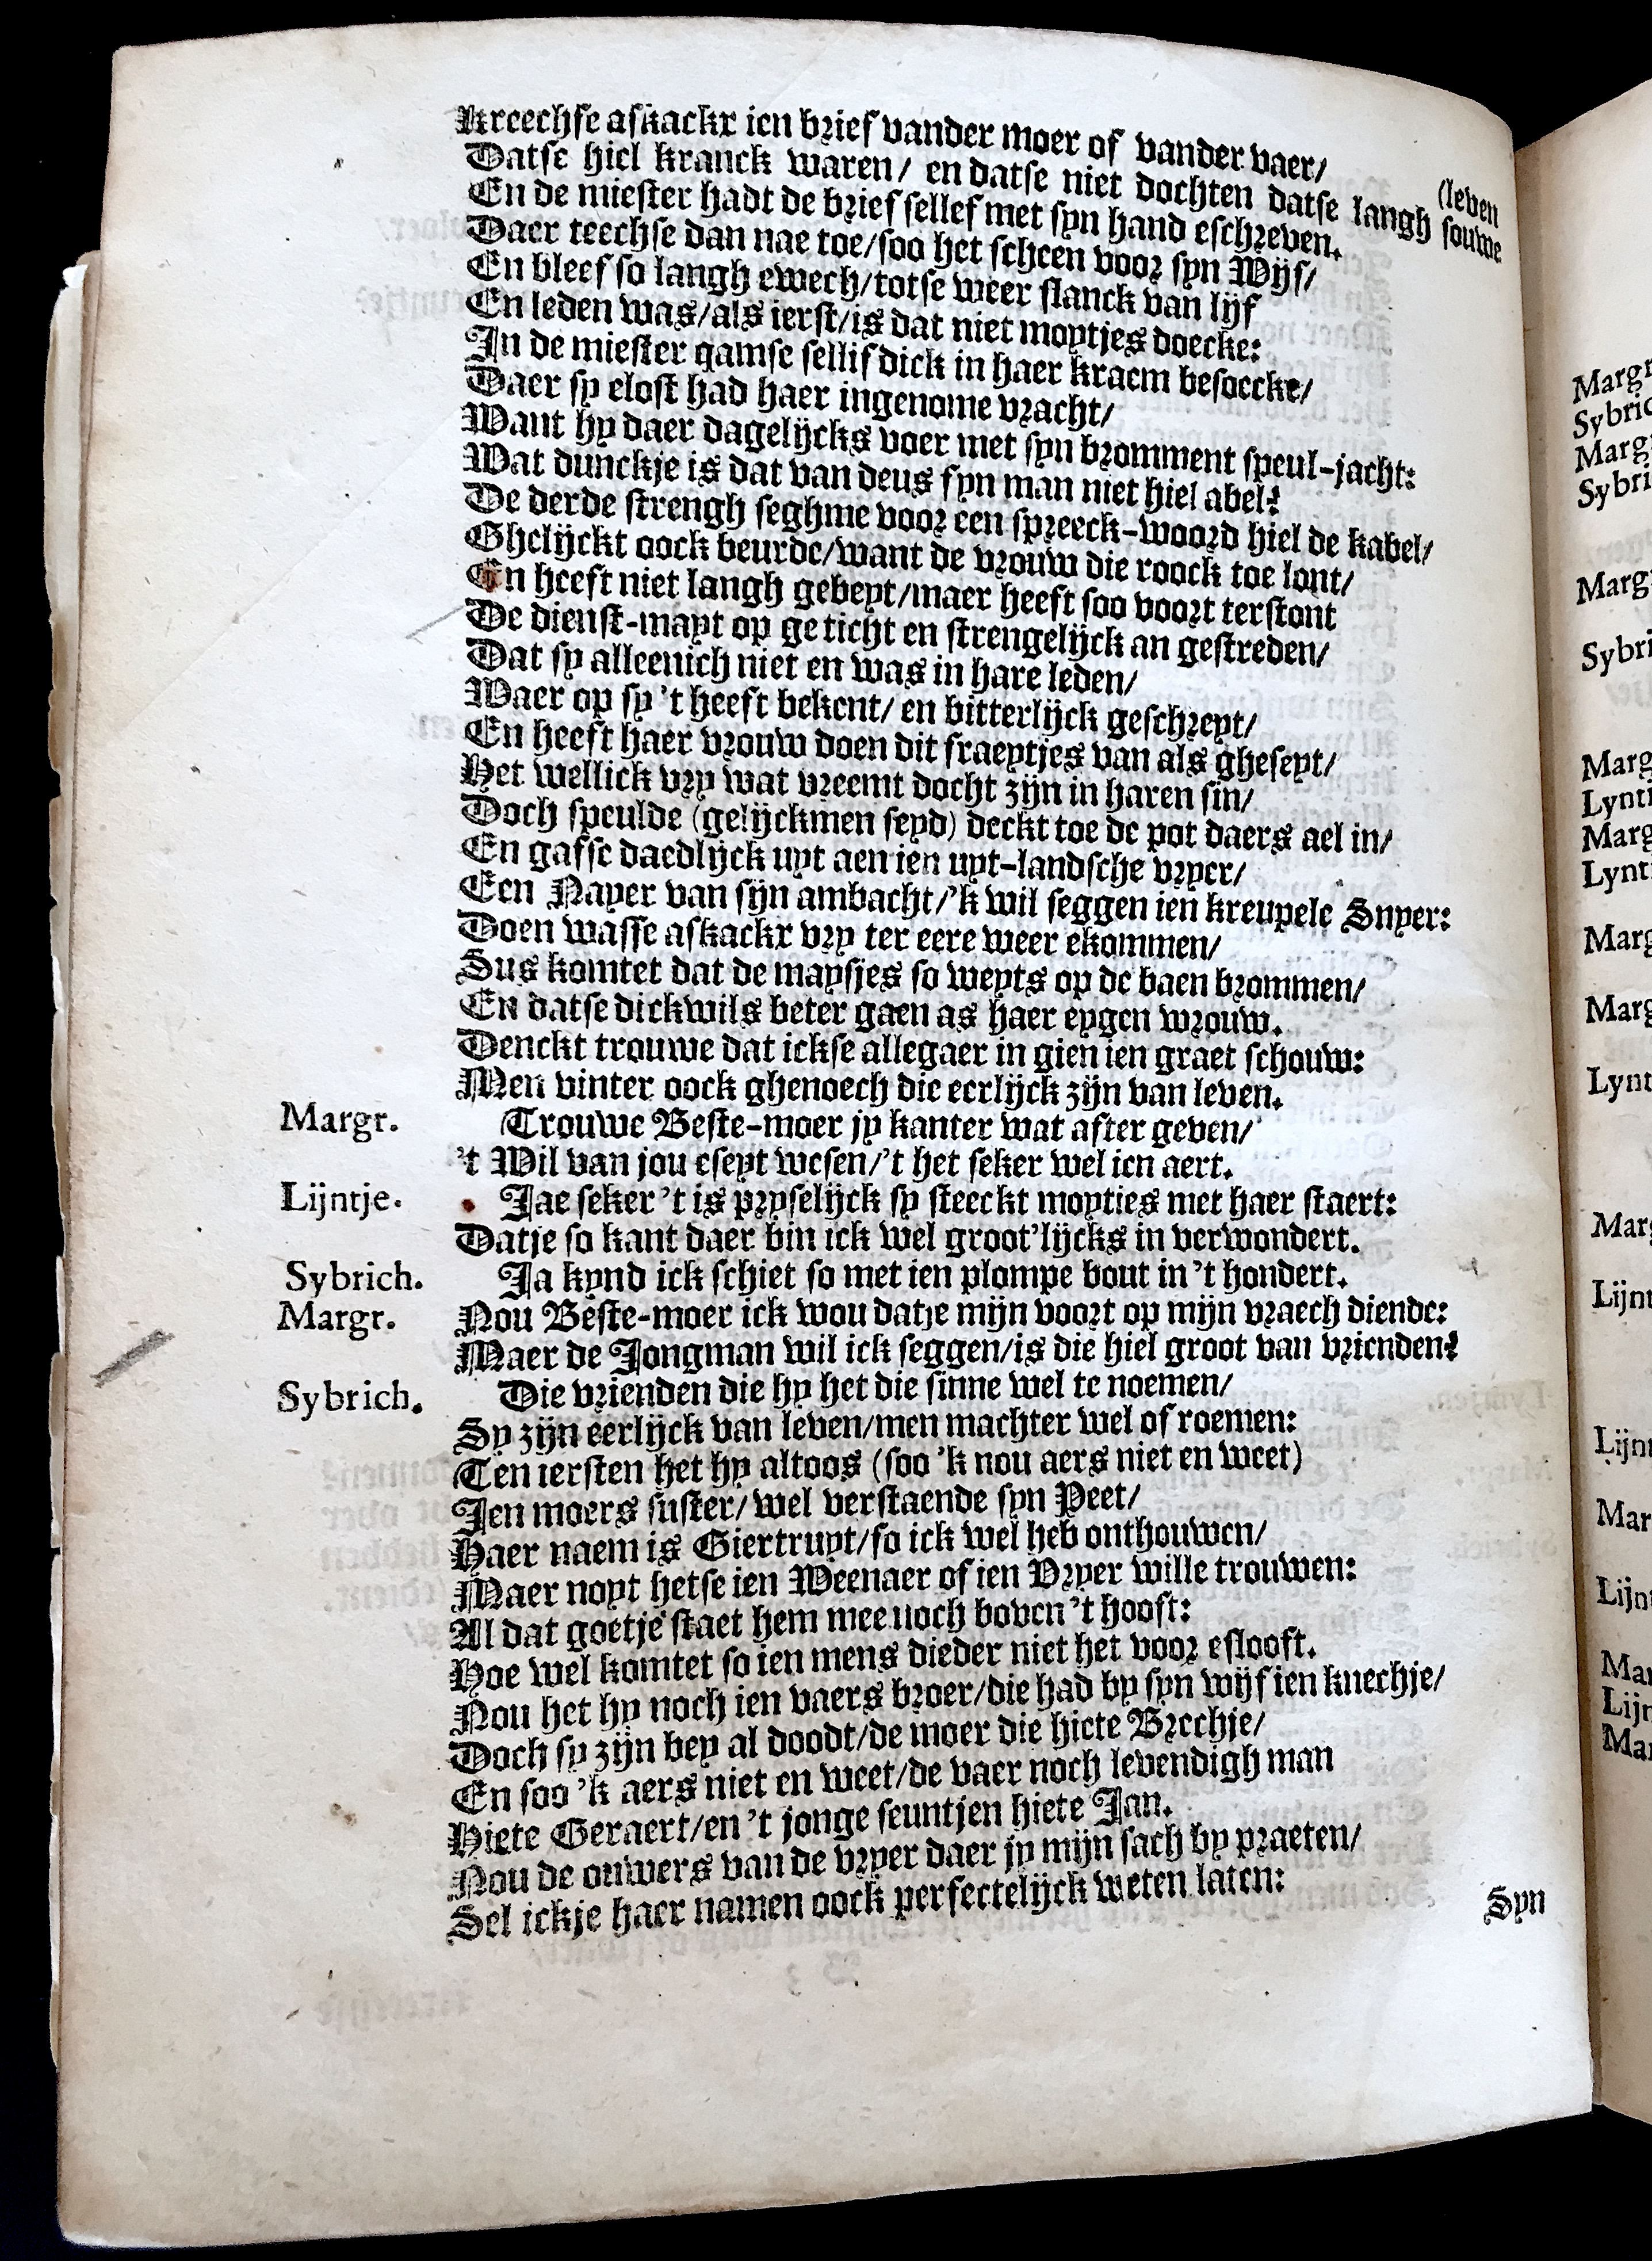 Kreechse askackr ien brief vander moer of vander vaer/
(leven
Datse hiel kranck waren/ en datse niet dochten datse langh souwe
En de miester hadt de brief sellef met syn hand eschreven.
Daer teechse dan nae toe/soo het scheen voor syn Wijf/
En bleef so langh ewech/totse weer slanck van lijf
En leden was/als ierst/is dat niet moytjes doecke:
In de miester qamse sellif dick in haer kraem besoecke/
Daer sy elost had haer ingenome vracht/
Want hy daer dagelijcks voer met syn bromment speul-jacht:
Wat dunckje is dat van deus fyn man niet hiel abel?
De derde strengh seghme voor een spreeck-woord hiel de kabel/
Ghelijckt oock beurde/want de vrouw die roock toe lont/
En heeft niet langh gebeyt/maer heeft soo voort terstont
De dienst-mayt op geticht en strengelijck an gestreden/
Dat sy alleenich niet en was in hare leden/
Waer op sy 't heeft bekent/ en bitterlijck geschreyt/
En heeft haer vrouw doen dit fraeytjes van als gheseyt/
Het wellick vry wat vreemt docht zijn in haren sin/
Doch speulde (gelijckmen seyd) deckt toe de pot daers ael in/
En gafse daedlijck uyt aen ien uyt-landsche vryer/
Een Nayer van sijn ambacht/'k wil seggen ien kreupele Snyer:
Doen wasse askackr vry ter eere weer ekommen/
Sus komtet dat de maysjes so weyts op de baen brommen/
En datse dickwils beter gaen as haer eygen vrouw.
Denckt trouwe dat ickse allegaer in gien ien graet schouw:
Men vinter oock ghenoech die eerlijck zijn van leven.
Margr. Trouwe Beste-moer jy kanter wat after geven/
't Wil van jou eseyt wesen/'t het seker wel ien aert.
Lijntje. Jae seker 't is pryselijck sy steeckt moyties met haer staert:
Datje so kant daer bin ick wel groot'lijcks in verwondert.
Sybrich. Ja kynd ick schiet so met ien plompe bout in 't hondert.
Margr. Nou Beste-moer ick wou datje mijn voort op mijn vraech diende:
Maer de Jongman wil ick seggen/is die hiel groot van vrienden?
Sybrich. Die vrienden die hy het die sinne wel te noemen/
Sy zijn eerlijck van leven/men machter wel of roemen:
Ten iersten het hy altoos (soo 'k nou aers niet en weet)
Ien moers suster/ wel verstaende syn Peet/
Haer naem is Giertruyt/so ick wel heb onthouwen/
Maer noyt hetse ien Weenaer of ien Vryer wille trouwen:
Al dat goetje staet hem mee noch boven 't hooft:
Hoe wel komtet so ien mens dieder niet het voor eslooft.
Nou het hy noch ien vaers broer/die had by syn wijf ien knechje/
Doch sy zijn bey al doodt/de moer die hiete Brechje/
En soo 'k aers niet en weet/de vaer noch levendigh man
Hiete Geraert/en 't jonge seuntjen hiete Jan.
Nou de ouwers van de vryer daer jy mijn sach by praeten/
Sel ickje haer namen oock perfectelijck weten laten:
Syn
Margr
Sybric
Marg
Sybri
Marg
Sybri
Marg
Lynti
Marg
Lynt
Marg
Marg
Lynt
Marg
Lijnt
Lijn
Mar
Lijn
Mar
Lijn
Mar